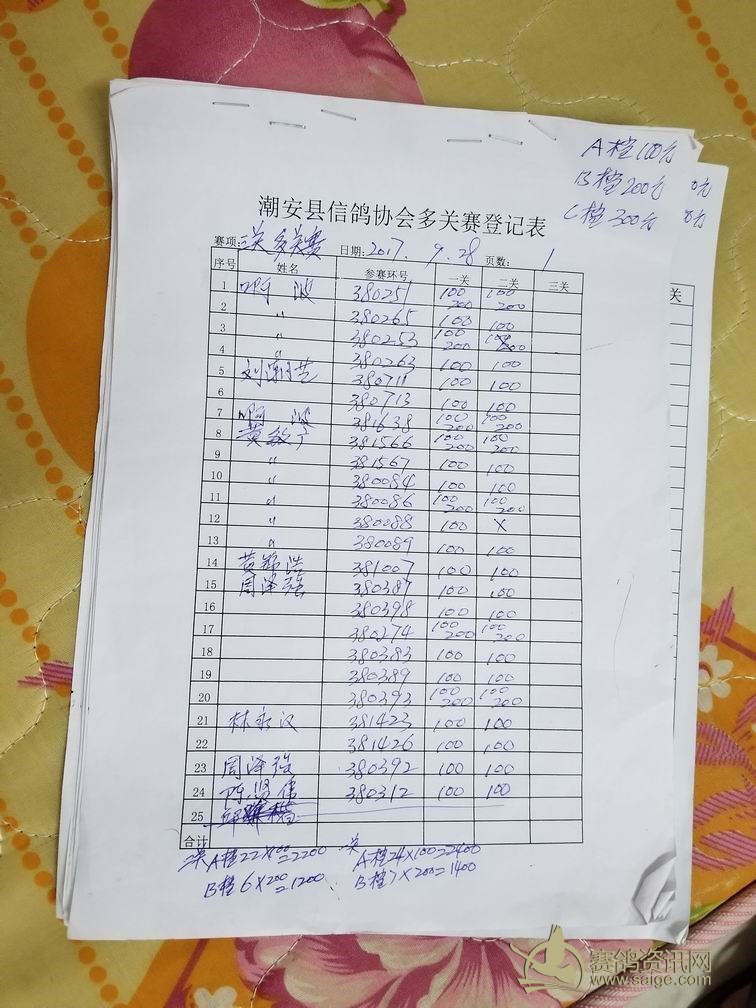 A档100元
B档200元
C档300元
潮安县信鸽协会多关赛登记表
赛项:二关多关赛 日期:2017.9.28 页数:1
序号 姓名 参赛环号 一关 二关 三关
1 380251 100 200 100 200
2 〃 380265 100 100
3 〃 380253 100 200
4 〃 380263 100 100
5 380711 100 100
6 380713 100 100
7 381638 100 200 100 200
8 黄 381566 100 200 100 200
9 〃 381567 100 100
10 〃 380084 100 100
11 〃 380086 100 200 100 200
12 〃 380088 100 X
13 〃 380089 100 100
14 黄 浩 381007 100 100
15 周泽强 380387 100 100
16 380398 100 100
17 380274 100 200 100 200
18 380383 100 100
19 380389 100 100
20 380393 100 200 100 200
21 林永汉 381423 100 100
22 381426 100 100
23 周泽强 380392 100 100
24 陈贤伟 380312 100 100
25
合计
二关A档22×100=2200 一关A档24×100=2400
B档6×200=1200 B档7×200=1400
关
赛鸽资讯网
www.saige.com